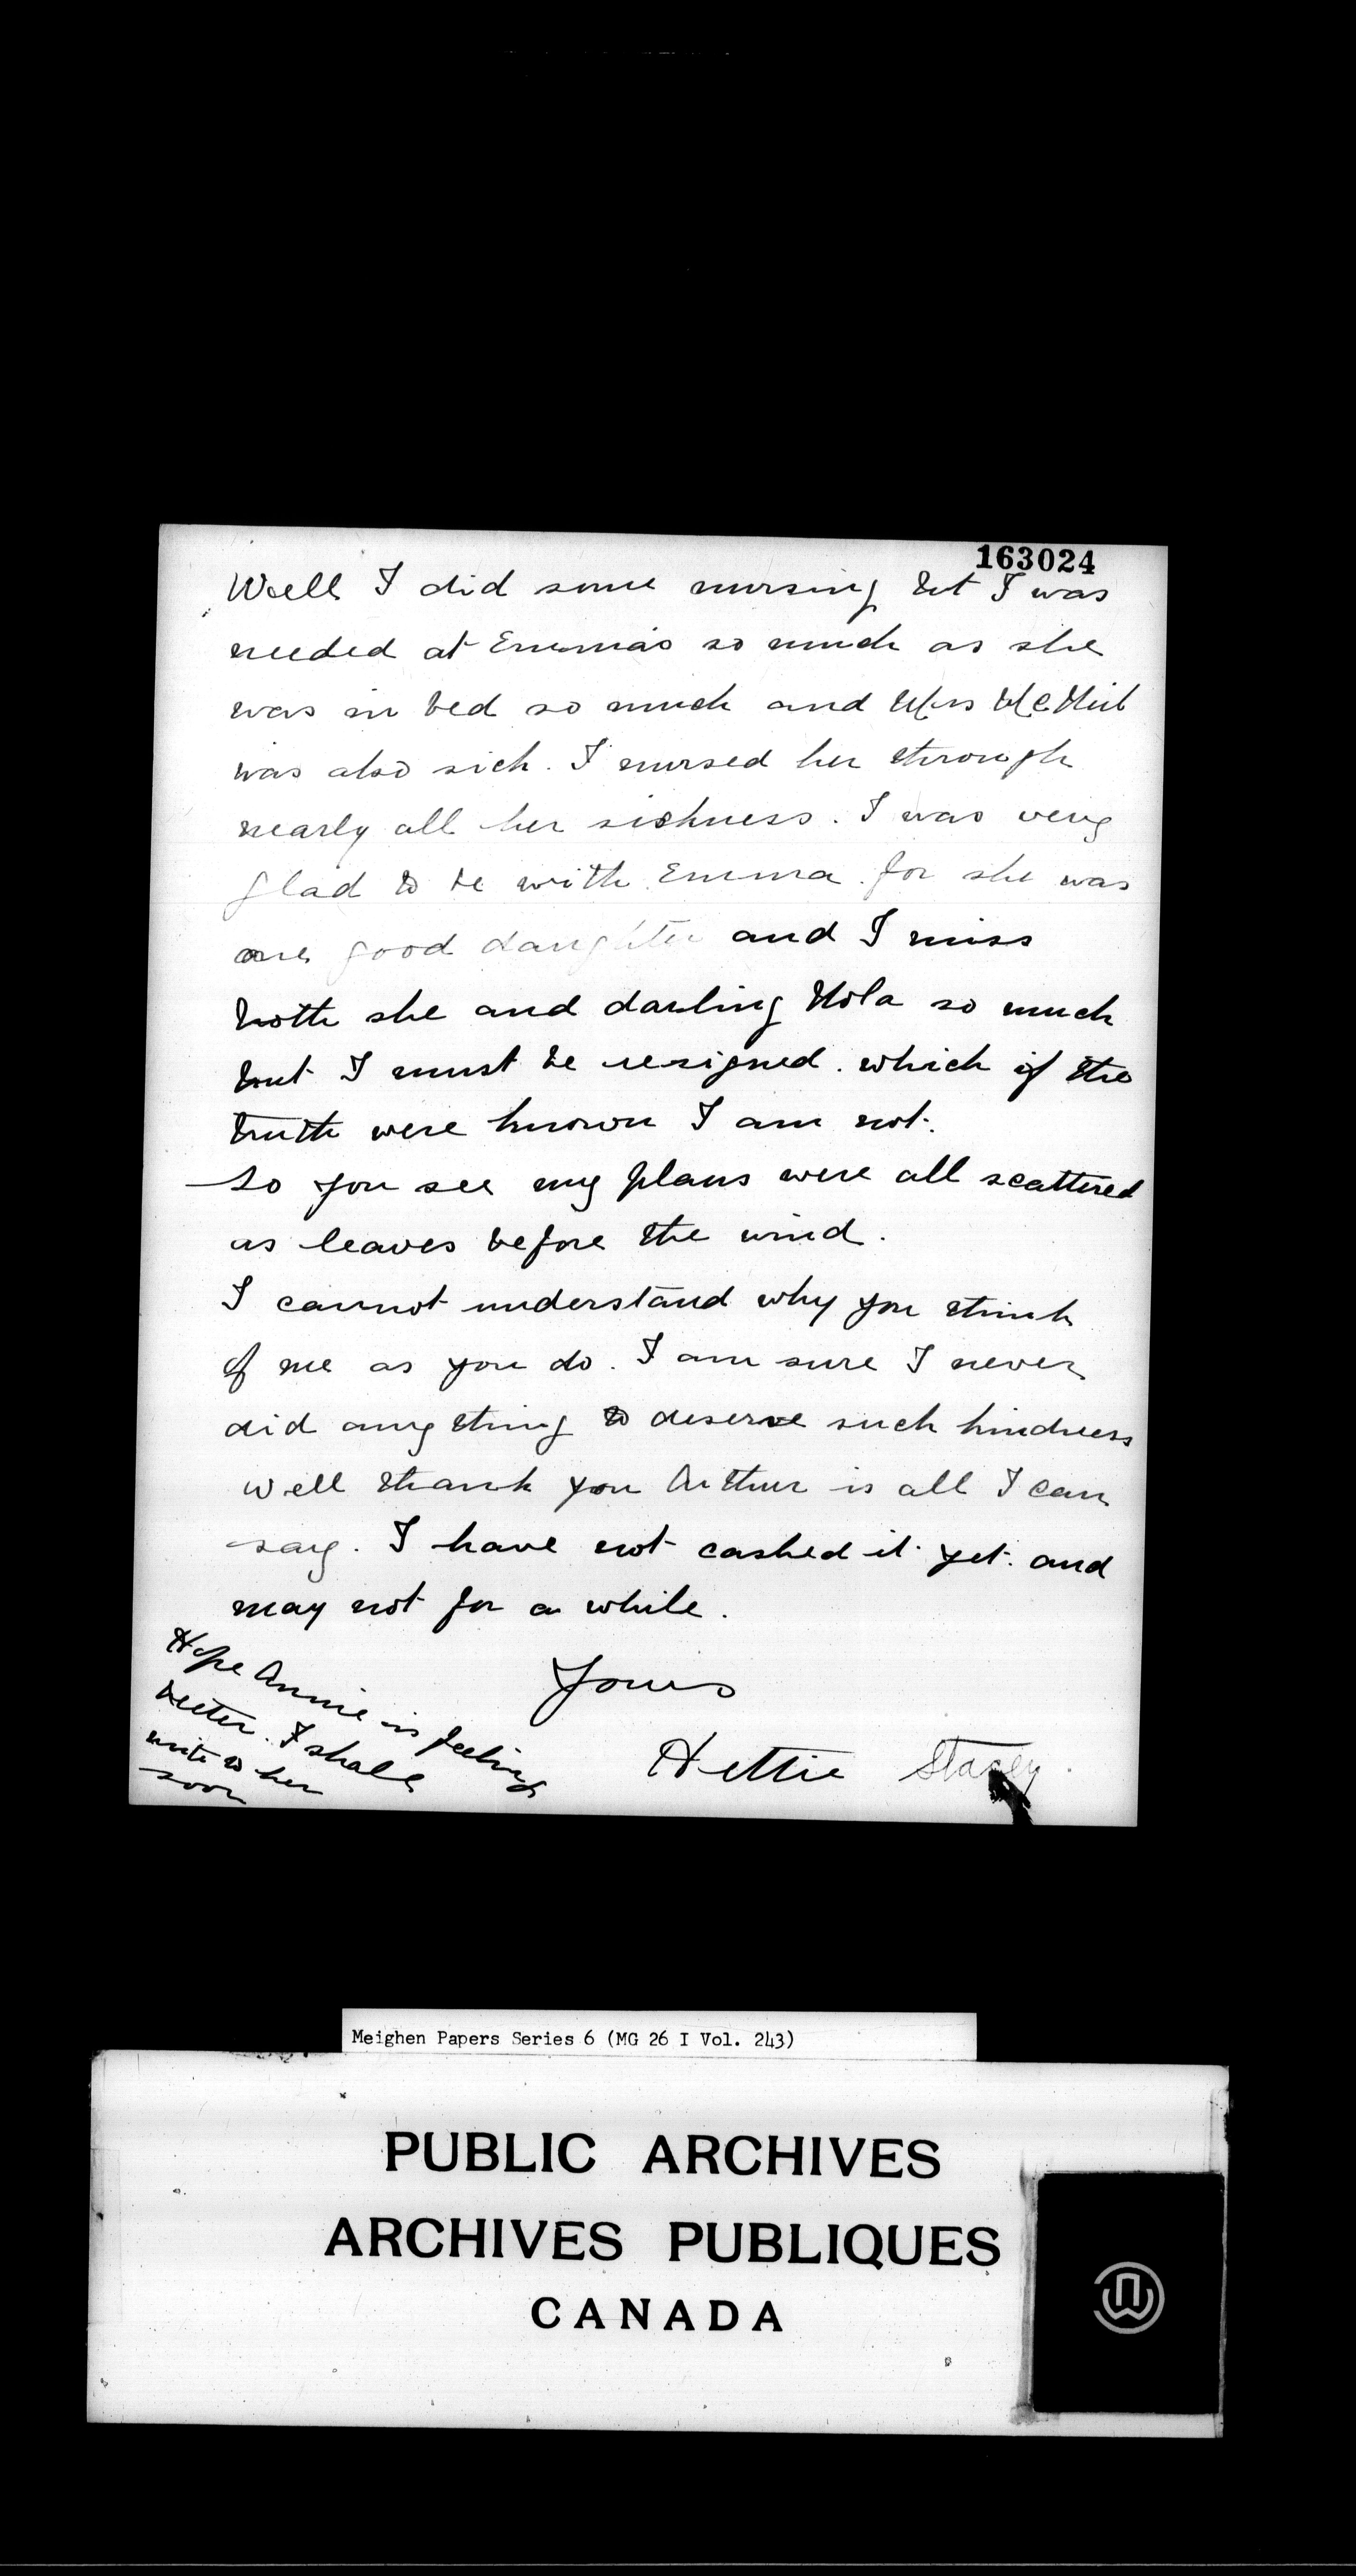 163024
Well I did some nursing but I was
needed at Emma's so much as she
was in bed so much and Mrs
was also sick. I nursed her through
nearly all her sickness. I was very
glad to be with Emma for she was
one good daughter and I miss
both she and darling so much
but I must be resigned. which if the
truth were known I am not.
So you see my plans were all scattered
as leaves before the wind.
I cannot understand why you think
of me as you do. I am sure I never
did anything to deserve such kindness
well thank you Arthur is all I can
say. I have not cashed it yet and
may not for a while.
Yours
Hettie Stacey
Hope Annie is feeling
better. I shall
write to her
soon
Meighen Papers Series 6 (MG 26 I Vol. 243)
PUBLIC ARCHIVES
ARCHIVES PUBLIQUES
CANADA